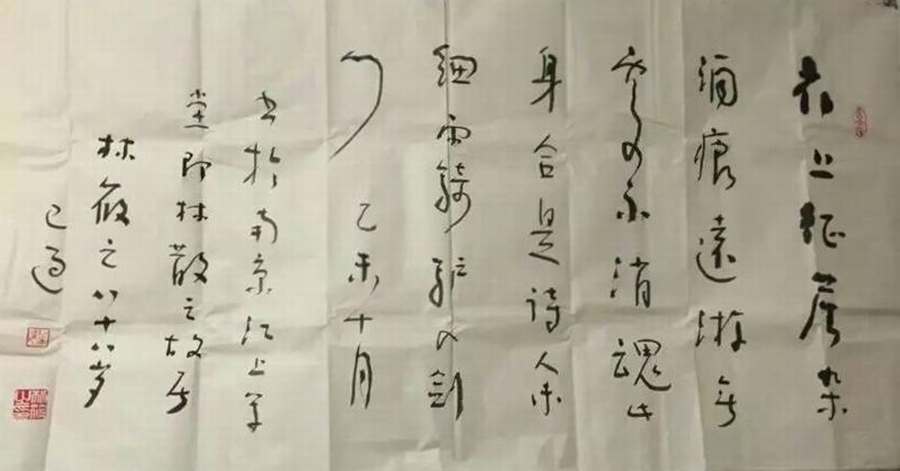 衣上征塵杂
酒痕遠游无
處不消魂此
身合是诗人未
細雨騎驴入劍
门 乙未十月
书於南京江上草
堂即林散之故居
林筱之八十八岁